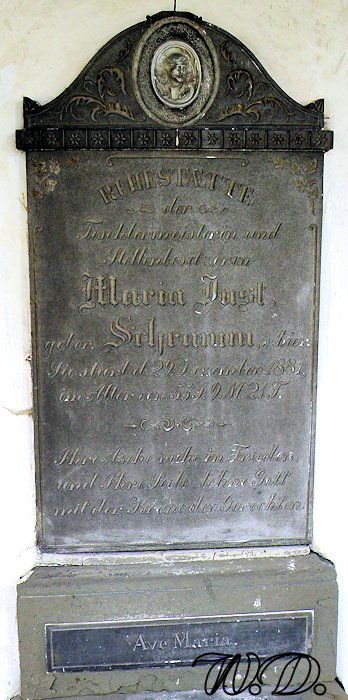 RUHESTÄTTE
der
Tischlermeisterin und
Stellenbesitzerin
Maria Just,
geber. Schramm, hier.
Sie starb d. 29. Dezember 1881,
im Alter von 53 J. 9 M. 21 T.
Ihre Asche ruhe in Frieden,
und Ihre Seele lohne Gott
mit der Krone der Gerechten.
Ave Maria.
W.D.